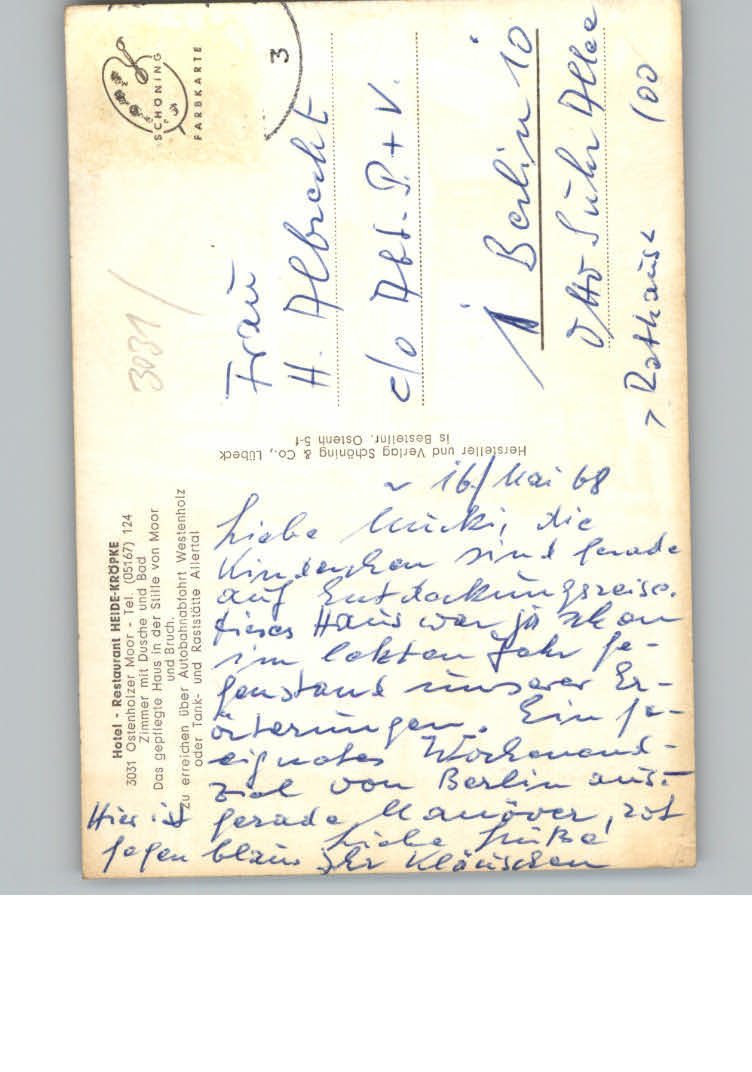 Hotel - Restaurant HEIDE-KRÖPKE
3031 Ostenholzer Moor - Tel. (05167) 124
Zimmer mit Dusche und Bad
Das gepflegte Haus in der Stille von Moor
und Bruch.
Zu erreichen über Autobahnabfahrt Westenholz
oder Tank- und Raststätte Allertal
16/Mai 68
Liebe Mucki, die
Kinderchen sind gerade
auf Entdeckungsreise.
Dieses Haus war ja schon
im letzten Jahr Ge-
genstand unserer Er-
örterungen. Ein ge-
eignetes Wochenend-
ziel von Berlin aus.
Hier ist gerade Manöver, rot
gegen blau. Liebe Grüße
Ihr Kläuschen
Hersteller und Verlag Schöning & Co., Lübeck
is Bestellnr. Ostenh 5-f
SCHÖNING
FARBKARTE
3
3031/
Frau
H. Albrecht
c/o Abt. P. + V.
1 Berlin 10
Otto Suhr Allee
100
> Rathaus <